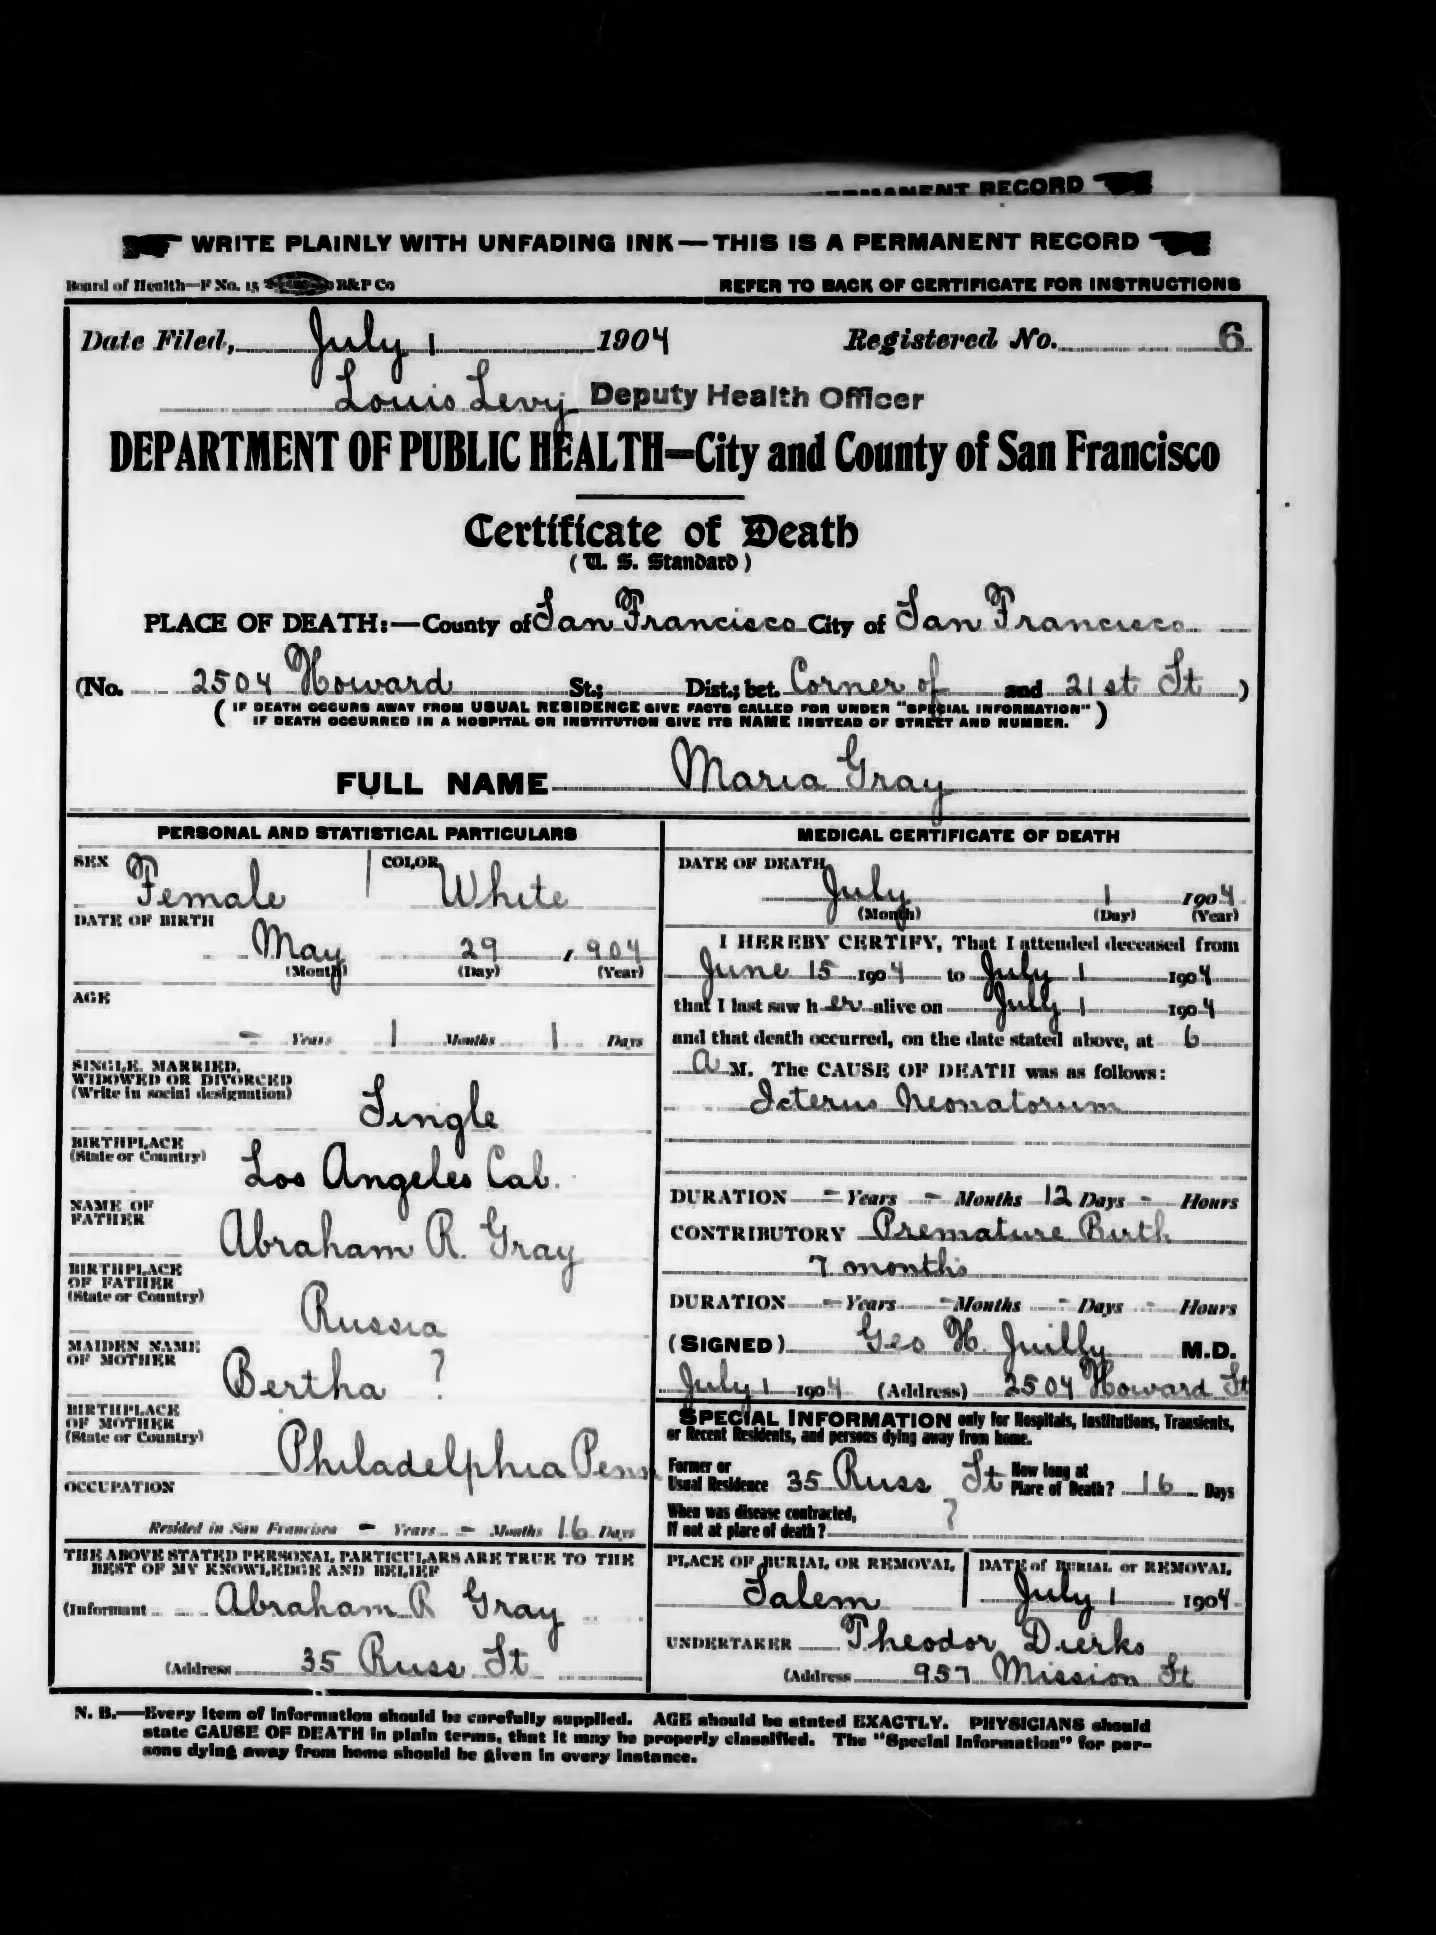 ERMANENT RECORD
WRITE PLAINLY WITH UNFADING INK—THIS IS A PERMANENT RECORD
Board of Health—F No. 15 B&P Co REFER TO BACK OF CERTIFICATE FOR INSTRUCTIONS
Date Filed, July 1 1904 Registered No. 6
Louis Levy Deputy Health Officer
DEPARTMENT OF PUBLIC HEALTH—City and County of San Francisco
Certificate of Death
(U. S. Standard)
PLACE OF DEATH:—County of San Francisco City of San Francisco
(No. 2504 Howard St.; Dist.; bet. Corner of and 21st St )
( IF DEATH OCCURS AWAY FROM USUAL RESIDENCE GIVE FACTS CALLED FOR UNDER "SPECIAL INFORMATION"
IF DEATH OCCURRED IN A HOSPITAL OR INSTITUTION GIVE ITS NAME INSTEAD OF STREET AND NUMBER. )
FULL NAME Maria Gray
PERSONAL AND STATISTICAL PARTICULARS
SEX Female COLOR White
DATE OF BIRTH
May 29 , 904
(Month) (Day) (Year)
AGE
- Years 1 Months 1 Days
SINGLE, MARRIED,
WIDOWED OR DIVORCED
(Write in social designation)
Single
BIRTHPLACE
(State or Country)
Los Angeles Cal.
NAME OF
FATHER
Abraham R. Gray
BIRTHPLACE
OF FATHER
(State or Country)
Russia
MAIDEN NAME
OF MOTHER
Bertha ?
BIRTHPLACE
OF MOTHER
(State or Country)
Philadelphia Penn
OCCUPATION
Resided in San Francisco - Years - Months 16 Days
THE ABOVE STATED PERSONAL PARTICULARS ARE TRUE TO THE
BEST OF MY KNOWLEDGE AND BELIEF
(Informant Abraham R Gray
(Address 35 Russ St
MEDICAL CERTIFICATE OF DEATH
DATE OF DEATH
July 1 1904
(Month) (Day) (Year)
I HEREBY CERTIFY, That I attended deceased from
June 15 1904 to July 1 1904
that I last saw h er alive on July 1 1904
and that death occurred, on the date stated above, at 6
a M. The CAUSE OF DEATH was as follows:
Icterus Neonatorum
DURATION - Years - Months 12 Days - Hours
CONTRIBUTORY Premature Birth
7 months
DURATION - Years - Months - Days - Hours
(SIGNED) Geo H. Juilly M.D.
July 1 1904 (Address) 2504 Howard St
SPECIAL INFORMATION only for Hospitals, Institutions, Transients,
or Recent Residents, and persons dying away from home.
Former or
Usual Residence 35 Russ St How long at
Place of Death? 16 Days
When was disease contracted,
If not at place of death? ?
PLACE OF BURIAL OR REMOVAL
Salem
DATE of BURIAL or REMOVAL
July 1 1904
UNDERTAKER Theodor Dierks
(Address 957 Mission St
N. B.—Every item of information should be carefully supplied. AGE should be stated EXACTLY. PHYSICIANS should
state CAUSE OF DEATH in plain terms, that it may be properly classified. The "Special Information" for per-
sons dying away from home should be given in every instance.